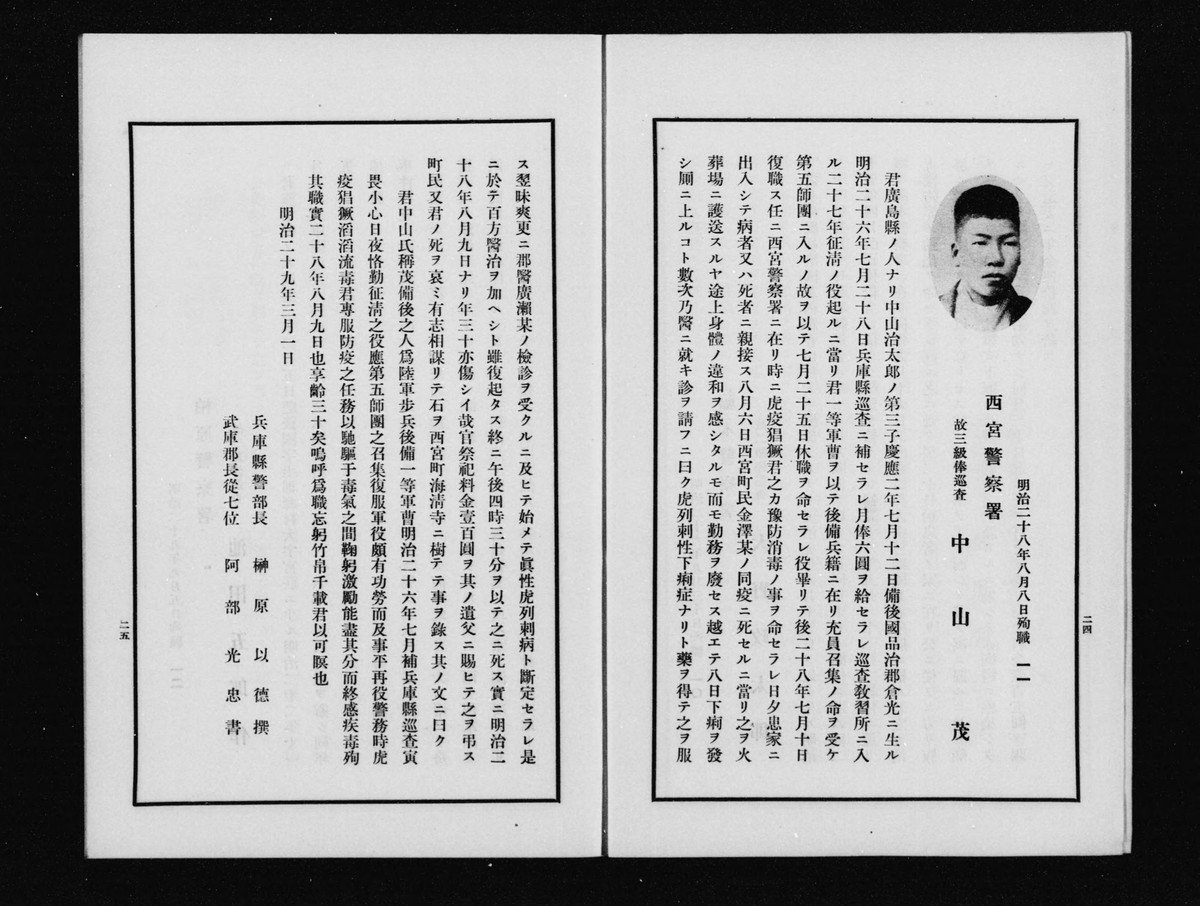 明治二十八年八月八日殉職 一一
西宮警察署
故三級俸巡査 中山茂
君廣島縣ノ人ナリ中山治太郎ノ第三子慶應二年七月十二日備後國品治郡倉光ニ生ル
明治二十六年七月二十八日兵庫縣巡査ニ補セラレ月俸六圓ヲ給セラレ巡査敎習所ニ入
ル二十七年征淸ノ役起ルニ當リ君一等軍曹ヲ以テ後備兵籍ニ在リ充員召集ノ命ヲ受ケ
第五師團ニ入ルノ故ヲ以テ七月二十五日休職ヲ命セラレ役畢リテ後二十八年七月十日
復職ス任ニ西宮警察署ニ在リ時ニ虎疫猖獗君之カ豫防消毒ノ事ヲ命セラレ日夕患家ニ
出入シテ病者又ハ死者ニ親接ス八月六日西宮町民金澤某ノ同疫ニ死セルニ當リ之ヲ火
葬場ニ護送スルヤ途上身體ノ違和ヲ感シタルモ而モ勤務ヲ廢セス越エテ八日下痢ヲ發
シ厠ニ上ルコト數次乃醫ニ就キ診ヲ請フニ曰ク虎列刺性下痢症ナリト藥ヲ得テ之ヲ服
二四
ス翌昧爽更ニ郡醫廣瀨某ノ檢診ヲ受クルニ及ヒテ始メテ眞性虎列刺病ト斷定セラレ是
ニ於テ百方醫治ヲ加ヘシト雖復起タス終ニ午後四時三十分ヲ以テ之ニ死ス實ニ明治二
十八年八月九日ナリ年三十亦傷シイ哉官祭祀料金壹百圓ヲ其ノ遺父ニ賜ヒテ之ヲ弔ス
町民又君ノ死ヲ哀ミ有志相謀リテ石ヲ西宮町海淸寺ニ樹テテ事ヲ錄ス其ノ文ニ曰ク
君中山氏稱茂備後之人爲陸軍步兵後備一等軍曹明治二十六年七月補兵庫縣巡査寅
畏小心日夜恪勤征淸之役應第五師團之召集復服軍役頗有功勞而及事平再役警務時虎
疫猖獗滔滔流毒君專服防疫之任務以馳驅于毒氣之間鞠躬激勵能盡其分而終感疾毒殉
其職實二十八年八月九日也享齡三十矣嗚呼爲職忘躬竹帛千載君以可瞑也
明治二十九年三月一日
兵庫縣警部長 榊原以德撰
武庫郡長從七位 阿部光忠書
二五